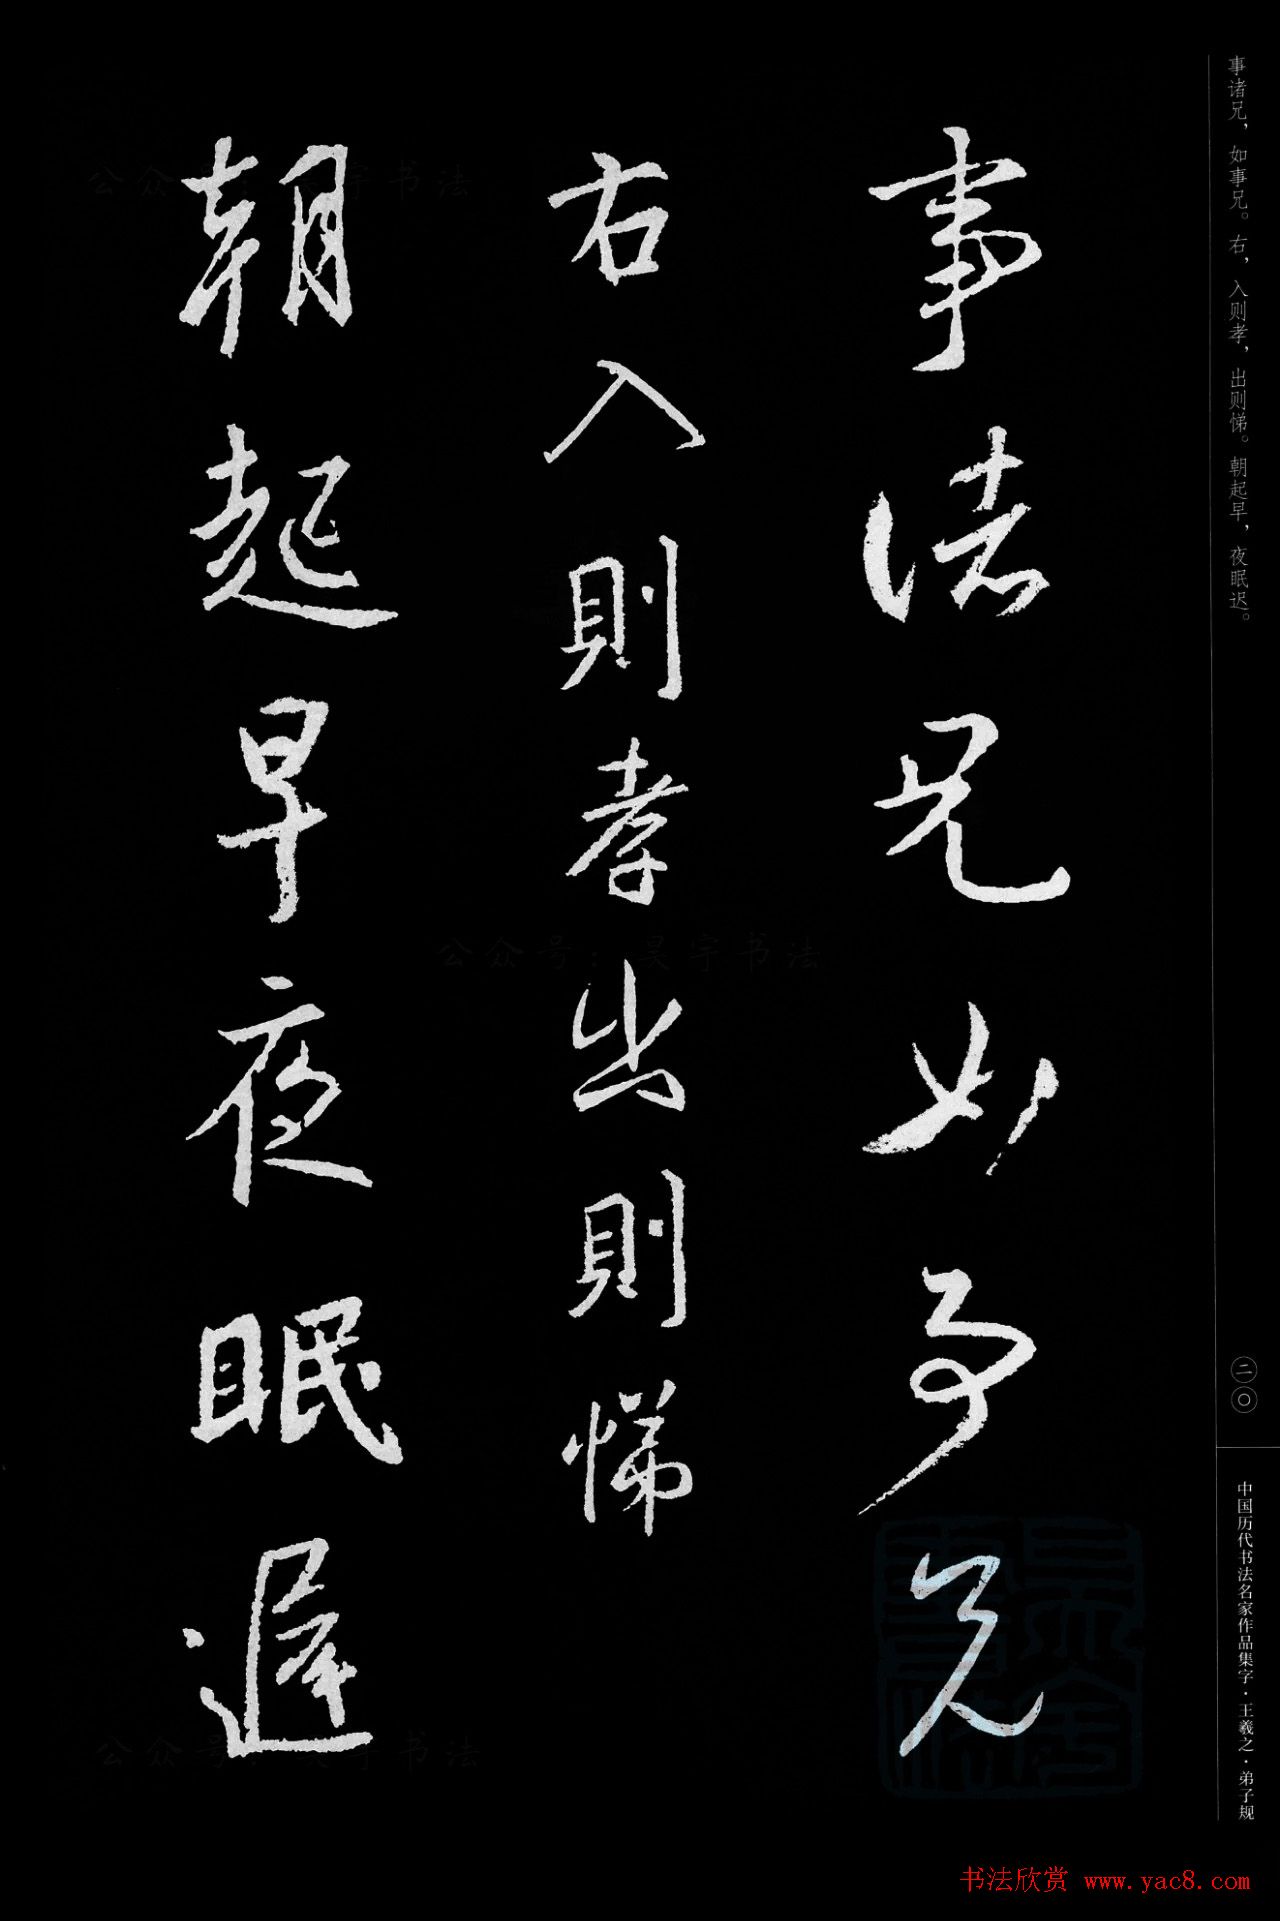 事诸兄，如事兄。右，入则孝，出则悌。朝起早，夜眠迟。
事諸兄如事兄
右入則孝出則悌
朝起早夜眠遲
二〇
中国历代书法名家作品集字·王羲之·弟子规
公众号：昊宇书法
公众号：昊宇书法
公众号：昊宇书法
书法欣赏 www.yac8.com